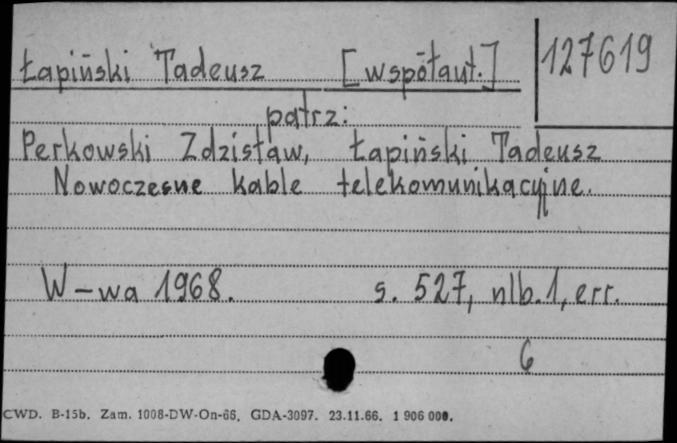 Łapiński Tadeusz [współaut.] 127619
patrz:
Perkowski Zdzisław, Łapiński Tadeusz
Nowoczesne kable telekomunikacyjne.
W-wa 1968. s. 527, nlb. 1, err.
6
CWD. B-15b. Zam. 1008-DW-On-66. GDA-3097. 23.11.66. 1 906 000.